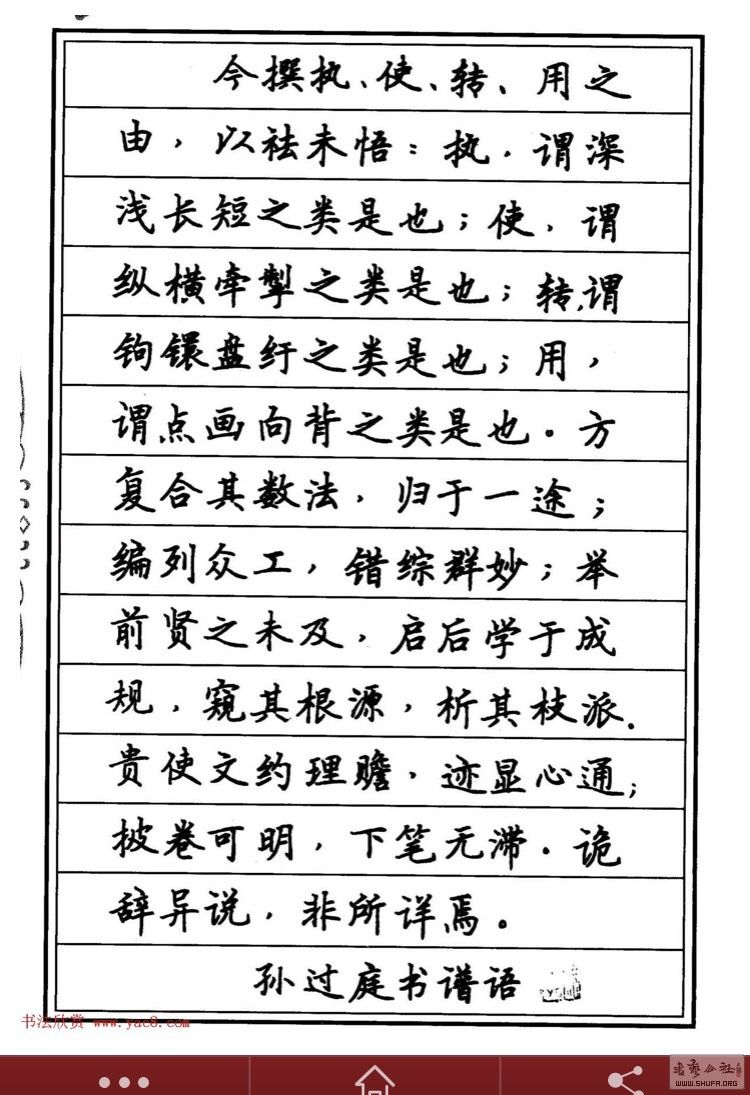 今撰执、使、转、用之
由，以祛未悟：执，谓深
浅长短之类是也；使，谓
纵横牵掣之类是也；转，谓
钩镮盘纡之类是也；用，
谓点画向背之类是也。方
复合其数法，归于一途；
编列众工，错综群妙；举
前贤之未及，启后学于成
规，窥其根源，析其枝派。
贵使文约理赡，迹显心通；
披卷可明，下笔无滞。诡
辞异说，非所详焉。
孙过庭书谱语
书法欣赏 www.yac8.com
书艺公社
WWW.SHUFA.ORG